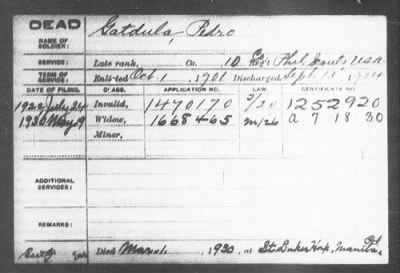 DEAD
NAME OF SOLDIER: Gatdula, Pedro
SERVICE: Late rank, Co. 10 Co Reg't Phil. Scouts U.S.A.
TERM OF SERVICE: Enlisted Oct. 1, 1901 Discharged Sept. 13, 1904
DATE OF FILING. CLASS. APPLICATION NO. LAW. CERTIFICATE NO.
1922 July 24 Invalid, 1470170 5/20 1252920
1930 May 9 Widow, 1668465 M/26 A 7 18 30
Minor,
ADDITIONAL SERVICES:
REMARKS:
Died March 1930, at St. Luke's Hosp., Manila, P.I.